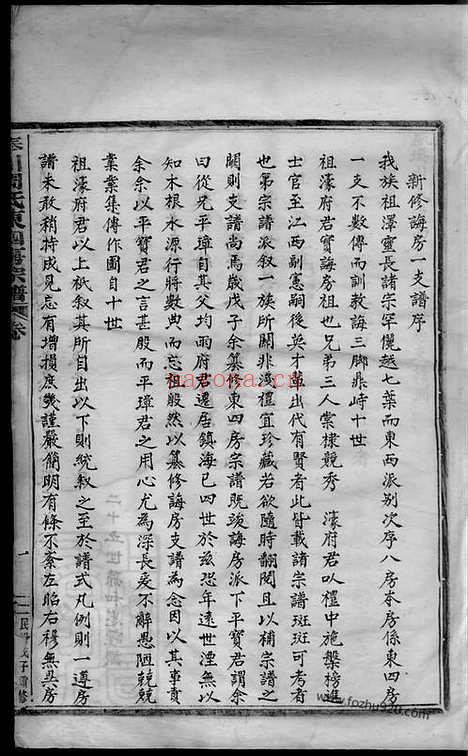 新修誨房一支譜序
我族祖澤靈長諸宗罕儷越七葉而東西派別次序八房本房係東四房
一支不數傳而訓教誨三脚鼎峙十世
祖濠府君實誨房祖也兄弟三人棠棣競秀　濠府君以禮中施槃榜進
士官至江西副憲嗣後英才輩出代有賢者此皆載諸宗譜斑斑可考者
也第宗譜派叙一族所關非淺禮宜珍藏若欲隨時翻閱且以補宗譜之
闕則支譜尚焉歲戊子余纂修東四房宗譜既竣誨房派下平寶君謂余
曰從兄平璋其父均雨府君遷居鎮海已四世於玆恐年遠世湮無以
知木根水源行將數典而忘祖殷然以纂修誨房支譜為念因以其事責
余余以平寶君之言甚殷而平璋君之用心尤為深長爰不辭愚陋兢兢
業業集傳作圖自十世
祖濠府君以上衹叙其所自出以下則統叙之至於譜式凡例則一遵房
譜未敢稍持成見忘有增損庶幾謹嚴簡明有條不紊左昭右穆無丑房
川周氏東四房宗譜
卷
一
二十五世孫
子
修
nayona.cn
www.fozhu920.com